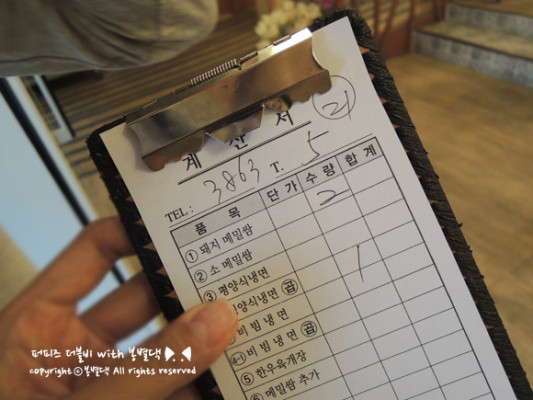 계 산 서
TEL: 3863 T. 5
품 목 단가 수량 합계
① 돼지 메밀쌈 2
② 소 메밀쌈
③ 평양식냉면
양식냉면 ㉿곱
비빔냉면 1
4-1 비빔냉면 곱
⑤ 한우육개장
⑥ 메밀쌈 추가
퍼피즈 더블비 with 봉별댁
copyright ⓒ 봉별댁 All rights reserved